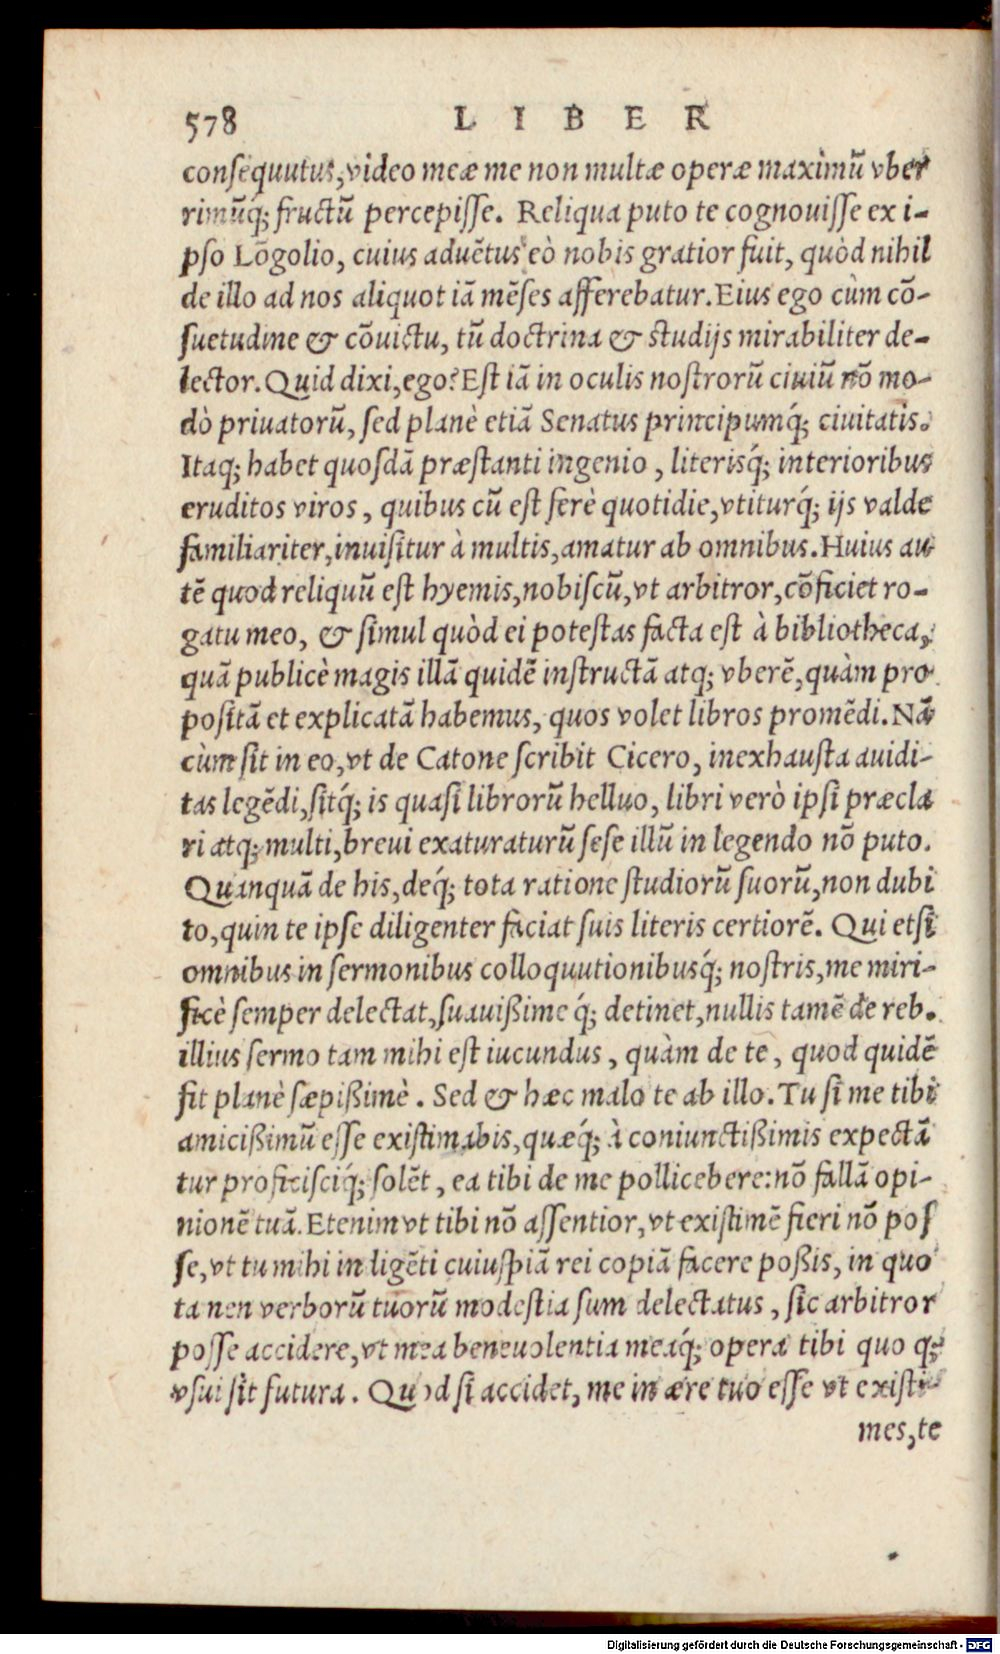 578 LIBER
consequutus, video meæ me non multæ operæ maximũ vber
rimũq́; fructũ percepisse. Reliqua puto te cognouisse ex i-
pso Lõgolio, cuius aduẽtus eò nobis gratior fuit, quòd nihil
de illo ad nos aliquot iã mẽses afferebatur. Eius ego cùm cõ-
suetudine & cõuictu, tũ doctrina & studijs mirabiliter de-
lector. Quid dixi, ego? Est iã in oculis nostrorũ ciuiũ nõ mo-
dò priuatorũ, sed planè etiã Senatus principumq́; ciuitatis.
Itaq; habet quosdã præstanti ingenio, literisq́; interioribus
eruditos viros, quibus cũ est ferè quotidie, vtiturq́; ijs valde
familiariter, inuisitur à multis, amatur ab omnibus. Huius au
tẽ quod reliquũ est hyemis, nobiscũ, vt arbitror, cõficiet ro-
gatu meo, & simul quòd ei potestas facta est à bibliotheca,
quã publicè magis illã quidẽ instructã atq; vberẽ, quàm pro
positã et explicatã habemus, quos volet libros promẽdi. Nã
cùm sit in eo, vt de Catone scribit Cicero, inexhausta auidi-
tas legẽdi, sitq́; is quasi librorũ helluo, libri verò ipsi præcla
ri atq; multi, breui exaturaturũ sese illũ in legendo nõ puto.
Quanquã de his, deq́; tota ratione studiorũ suorũ, non dubi
to, quin te ipse diligenter faciat suis literis certiorẽ. Qui etsi
omnibus in sermonibus colloquutionibusq́; nostris, me miri-
ficè semper delectat, suauißime q́; detinet, nullis tamẽ de reb.
illius sermo tam mihi est iucundus, quàm de te, quod quidẽ
fit planè sæpißimè. Sed & hæc malo te ab illo. Tu si me tibi
amicißimũ esse existimabis, quæq́; à coniunctißimis expectã
tur proficisciq́; solẽt, ea tibi de me pollicebere: nõ fallã opi-
nionẽ tuã. Etenim vt tibi nõ assentior, vt existimẽ fieri nõ pos
se, vt tu mihi indigẽti cuiuspiã rei copiã facere poßis, in quo
ta nen verborũ tuorũ modestia sum delectatus, sic arbitror
posse accidere, vt mea beneuolentia meaq́; opera tibi quo q;
vsui sit futura. Quod si accidet, me in ære tuo esse vt existi-
mes, te
Digitalisierung gefördert durch die Deutsche Forschungsgemeinschaft - DFG